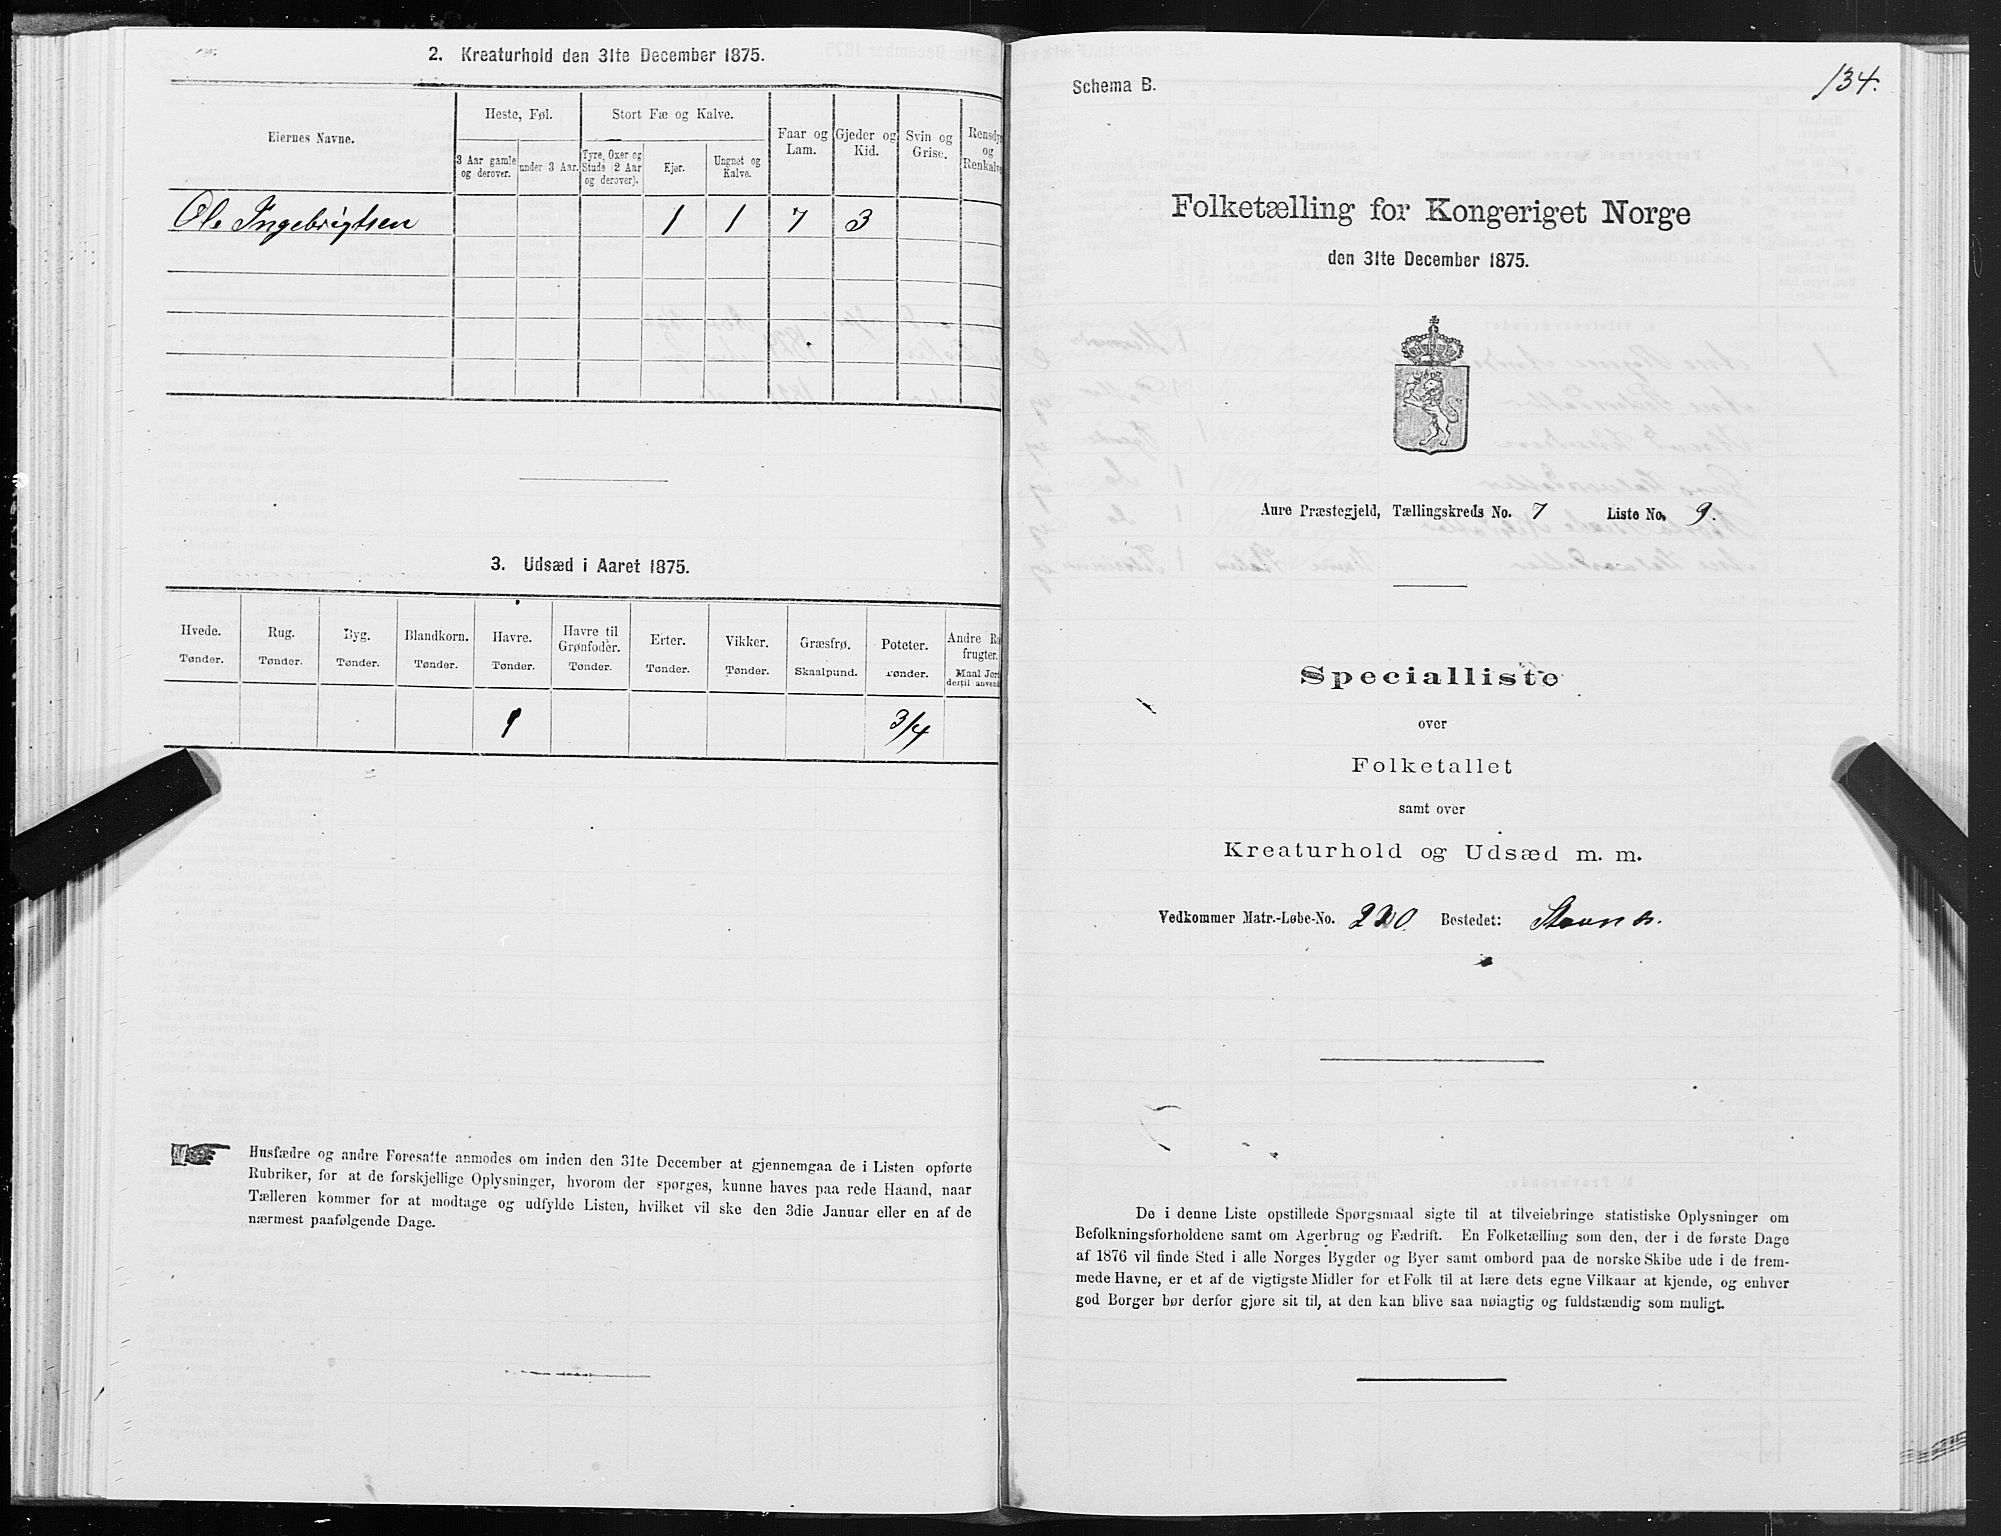 2. Kreaturhold den 31te December 1875.
Eiernes Navne.
Heste, Føl.
Stort Fæ og Kalve.
Faar og Lam.
Gjeder og Kid.
Svin og Grise.
Rensdyr og Renkalve
3 Aar gamle og derover.
under 3 Aar.
Tyre, Oxer og Stude (2 Aar og derover).
Kjør.
Ungnøt og Kalve.
Ole Ingebrigtsen 1 1 7 3
3. Udsæd i Aaret 1875.
Hvede. Rug. Byg. Blandkorn. Havre. Havre til Grønfoder. Erter. Vikker. Græsfrø. Poteter. Andre Ro frugter.
Tønder. Tønder. Tønder. Tønder. Tønder. Tønder. Tønder. Tønder. Skaalpund. Tønder. Maal Jor dertil anvend
1 3/4
Husfædre og andre Foresatte anmodes om inden den 31te December at gjennemgaa de i Listen opførte
Rubriker, for at de forskjellige Oplysninger, hvorom der spørges, kunne haves paa rede Haand, naar
Tælleren kommer for at modtage og udfylde Listen, hvilket vil ske den 3die Januar eller en af de
nærmest paafølgende Dage.
134.
Schema B.
Folketælling for Kongeriget Norge
den 31te December 1875.
Aure Præstegjeld, Tællingskreds No. 7 Liste No. 9.
Specialliste
over
Folketallet
samt over
Kreaturhold og Udsæd m. m.
Vedkommer Matr.-Løbe-No. 220. Bestedet:
De i denne Liste opstillede Spørgsmaal sigte til at tilveiebringe statistiske Oplysninger om
Befolkningsforholdene samt om Agerbrug og Fædrift. En Folketælling som den, der i de første Dage
af 1876 vil finde Sted i alle Norges Bygder og Byer samt ombord paa de norske Skibe ude i de frem-
mede Havne, er et af de vigtigste Midler for et Folk til at lære dets egne Vilkaar at kjende, og enhver
god Borger bør derfor gjøre sit til, at den kan blive saa nøiagtig og fuldstændig som muligt.